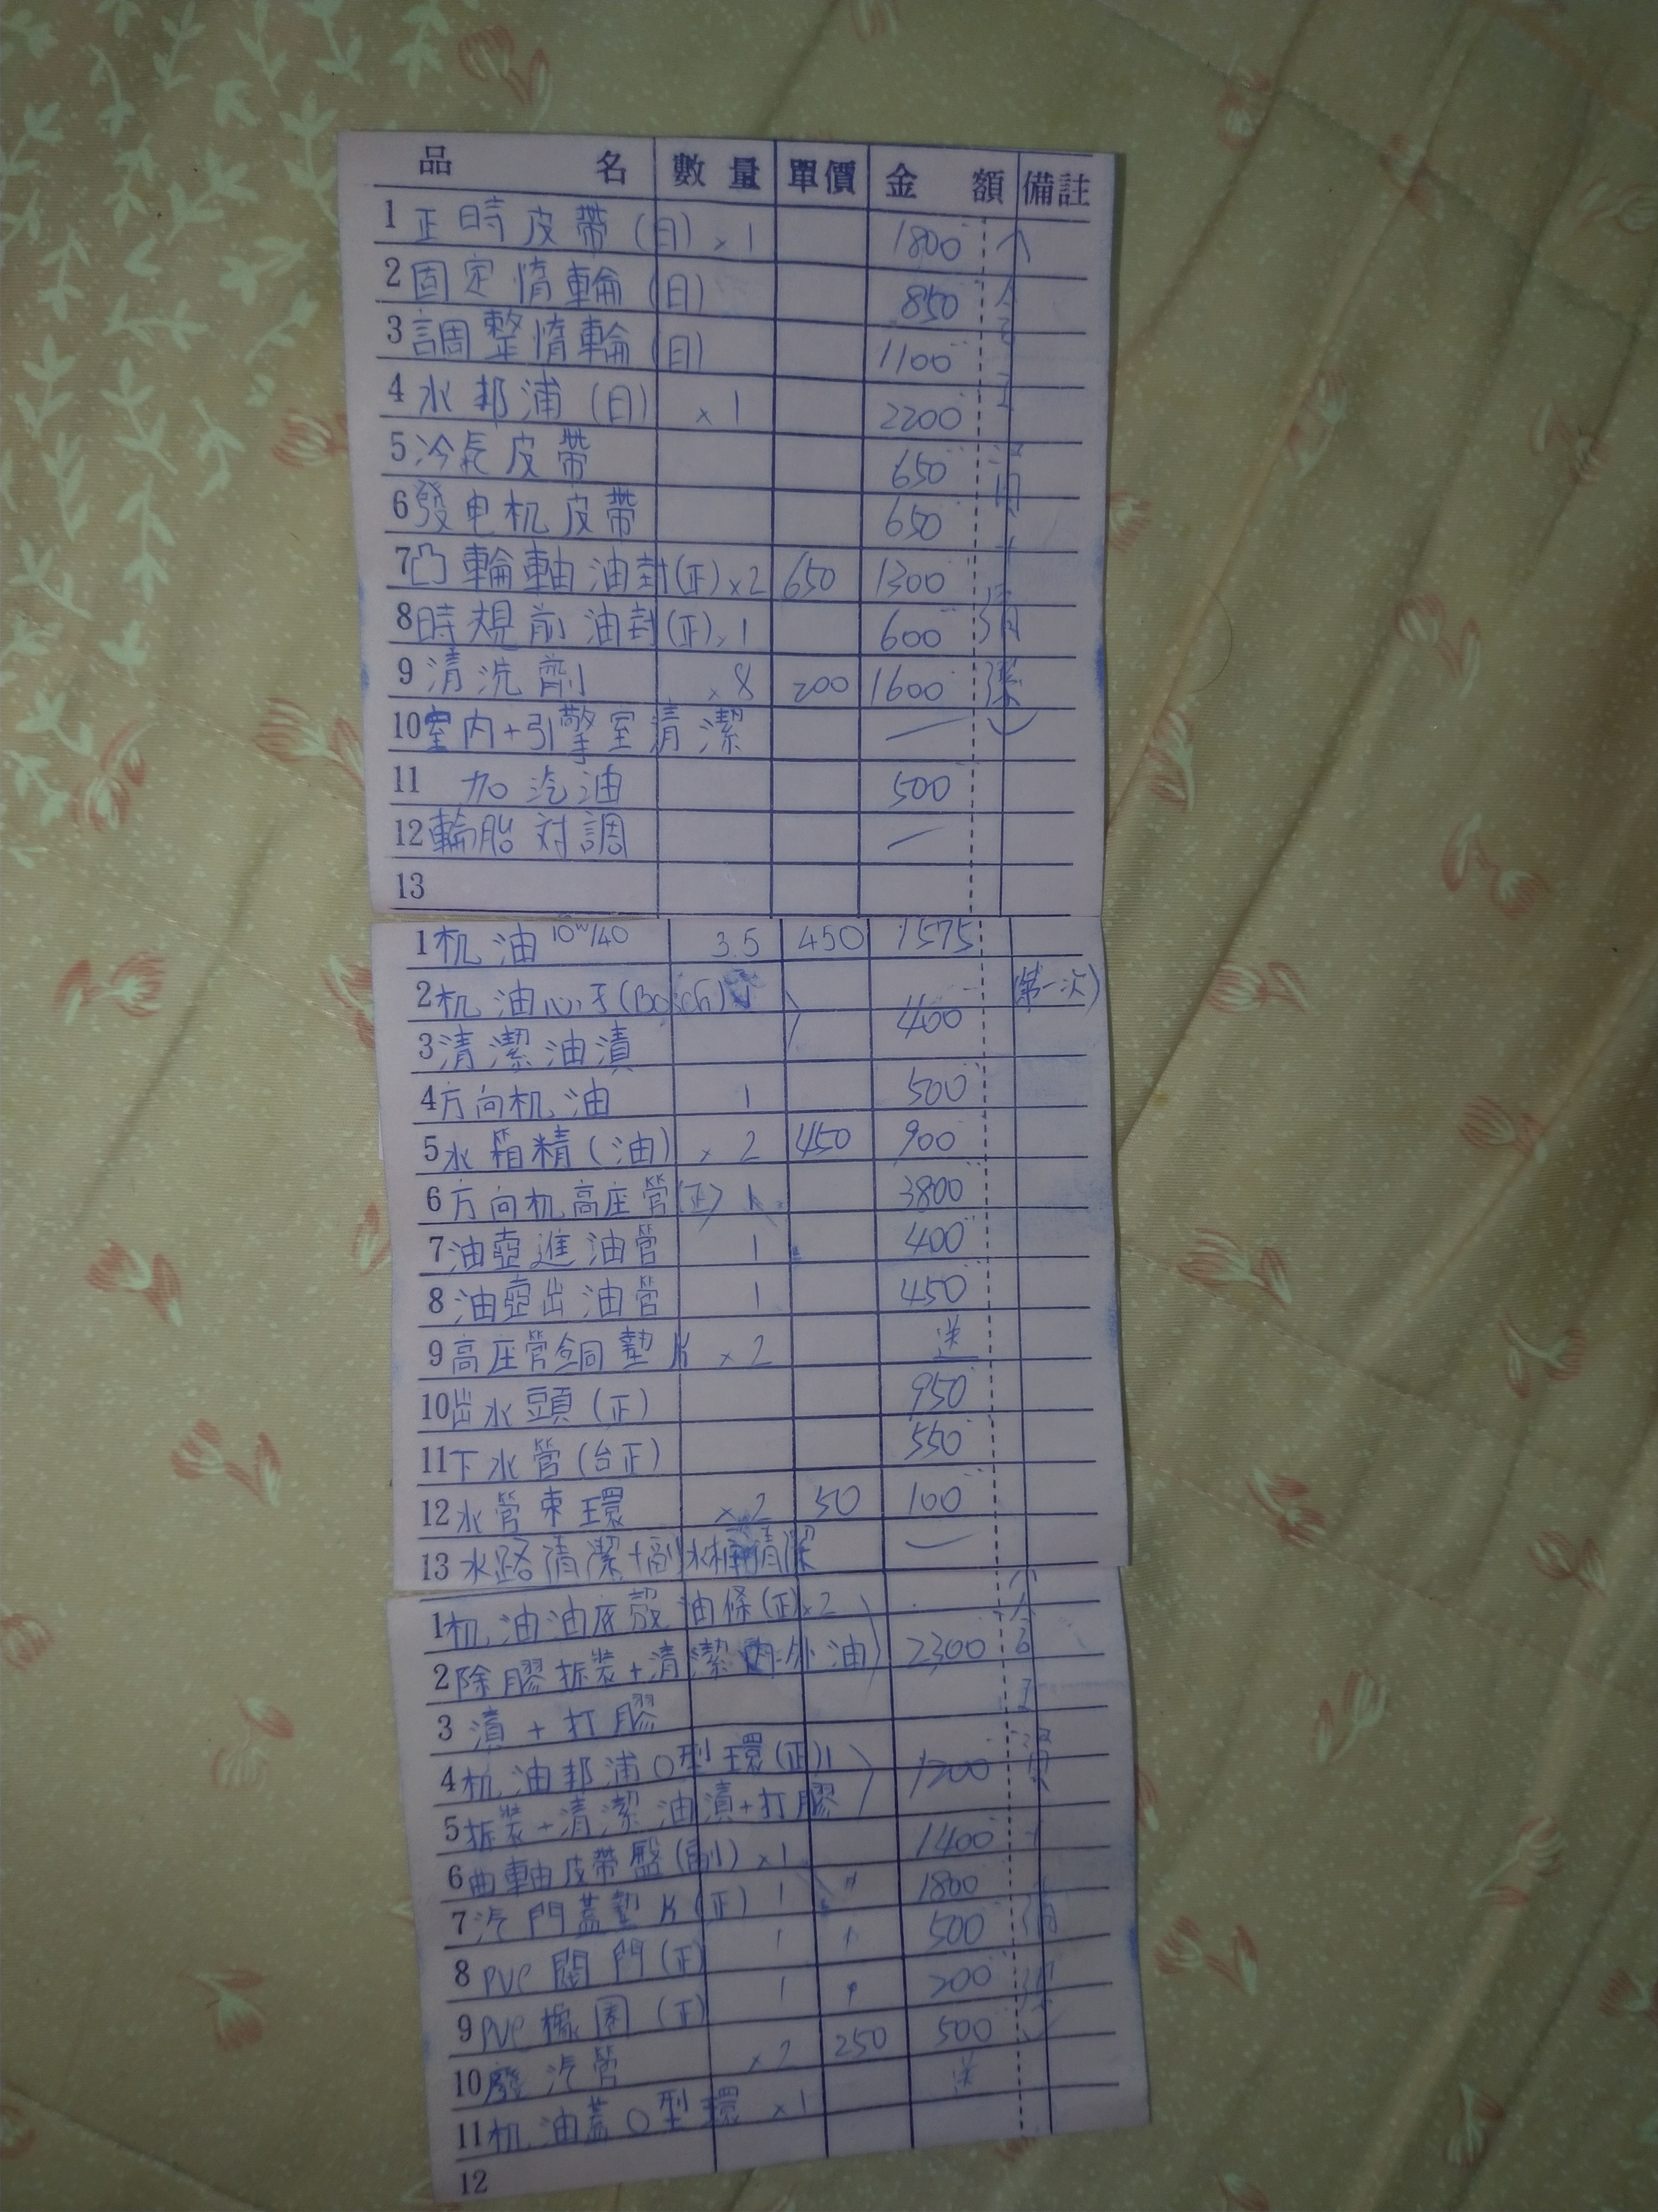 品 名 數量 單價 金 額 備註
1 正時皮帶(日) ×1 1800
2 固定惰輪(日) 850
3 調整惰輪(日) 1100
4 水邦浦(日) ×1 2200
5 冷氣皮帶 650
6 發电机皮帶 650
7 凸輪軸油封(正) ×2 650 1300
8 時規前油封(正) ×1 600
9 清洗劑 ×8 200 1600
10 室內+引擎室清潔 —
11 加汽油 500
12 輪胎対調 —
13
1 机油 10w/40 3.5 450 1575
2 机油心子(Bosch) 1 400 (第一次)
3 清潔油漬
4 方向机油 1 500
5 水箱精(油) ×2 450 900
6 方向机高座管(正) 1 3800
7 油壺進油管 1 400
8 油壺出油管 1 450
9 高座管銅墊片 ×2 送
10 出水頭(正) 950
11 下水管(台正) 550
12 水管束環 ×2 50 100
13 水路清潔+副水桶清潔 —
1 机油油底殼油條(正)×2
2 除膠拆裝+清潔內外油 2300
3 漬+打膠
4 机油邦浦O型環(正)1 1200
5 拆裝+清潔油漬+打膠
6 曲軸皮帶盤(副) ×1 1400
7 汽門蓋墊片(正) 1 1800
8 PVC閥門(正) 1 500
9 PVC橡圈(正) 1 200
10 廢汽管 ×2 250 500
11 机油蓋O型環 ×1 送
12